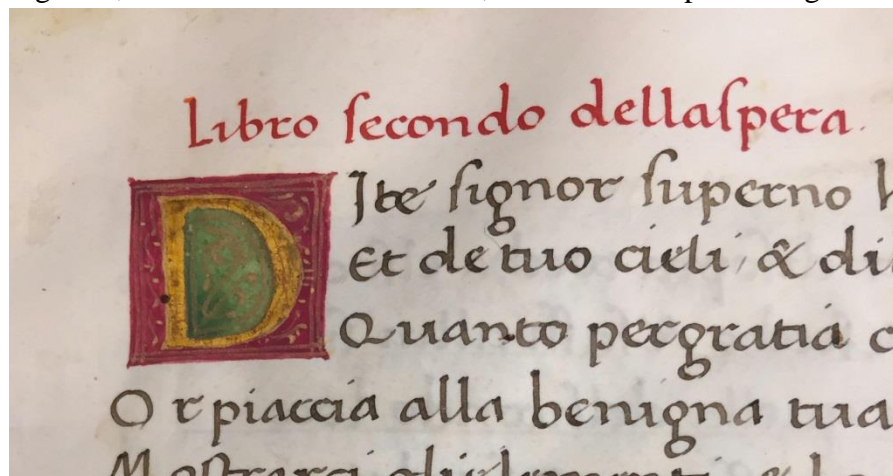 Libro ſecondo dellaſpera.
DIte ſignor ſuperno
Et de tuo cieli, & di
Quanto pergratia c
Or piaccia alla benigna tua
Moſtrarci